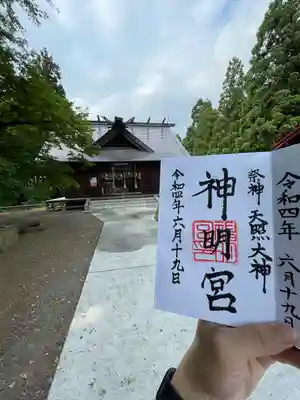 祭神 天照大神
神明宮
令和四年六月十九日
令和四年 六月十九日